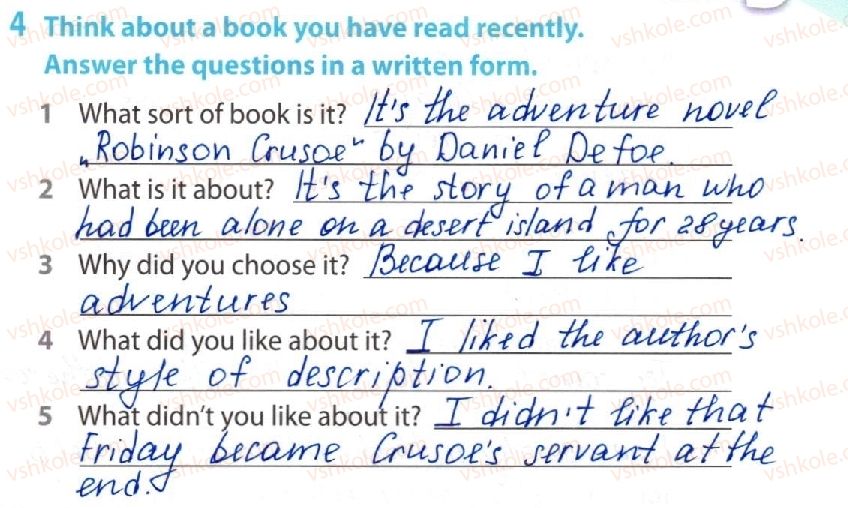 4 Think about a book you have read recently.
Answer the questions in a written form.
1 What sort of book is it? It's the adventure novel
„Robinson Crusoe" by Daniel Defoe.
2 What is it about? It's the story of a man who
had been alone on a desert island for 28 years.
3 Why did you choose it? Because I like
adventures
4 What did you like about it? I liked the author's
style of description.
5 What didn't you like about it? I didn't like that
Friday became Crusoe's servant at the
end.
vshkole.com